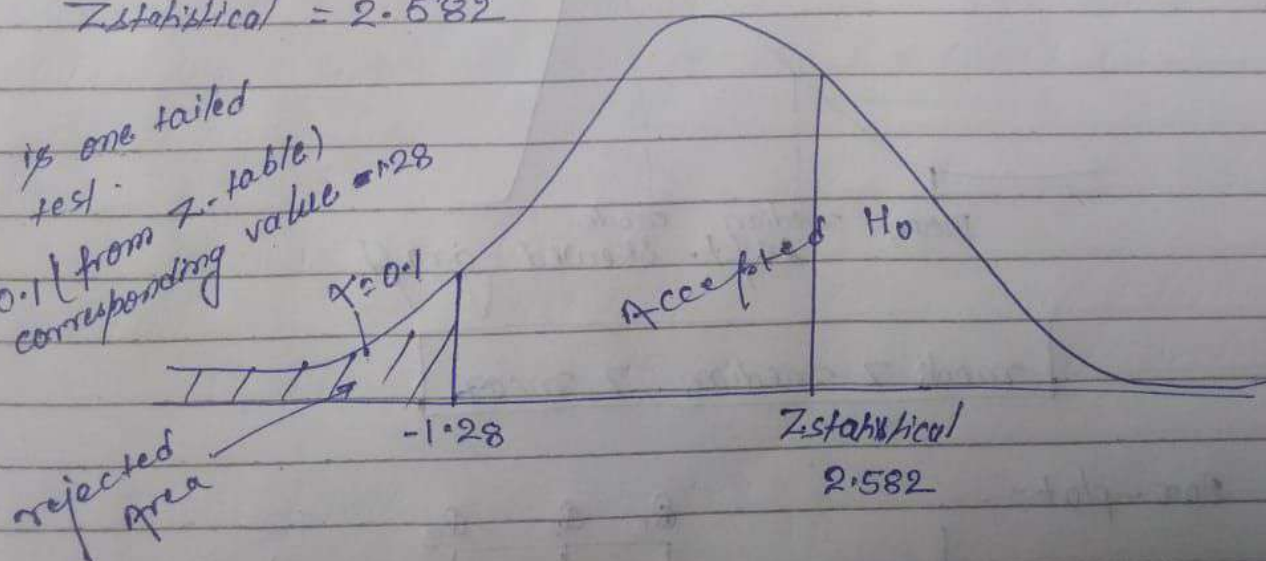 Zstatistical = 2.582
is one tailed
test.
0.1 (from z-table)
corresponding value -1.28
α=0.1
Accepted H₀
-1.28
Zstatistical
2.582
rejected
Area